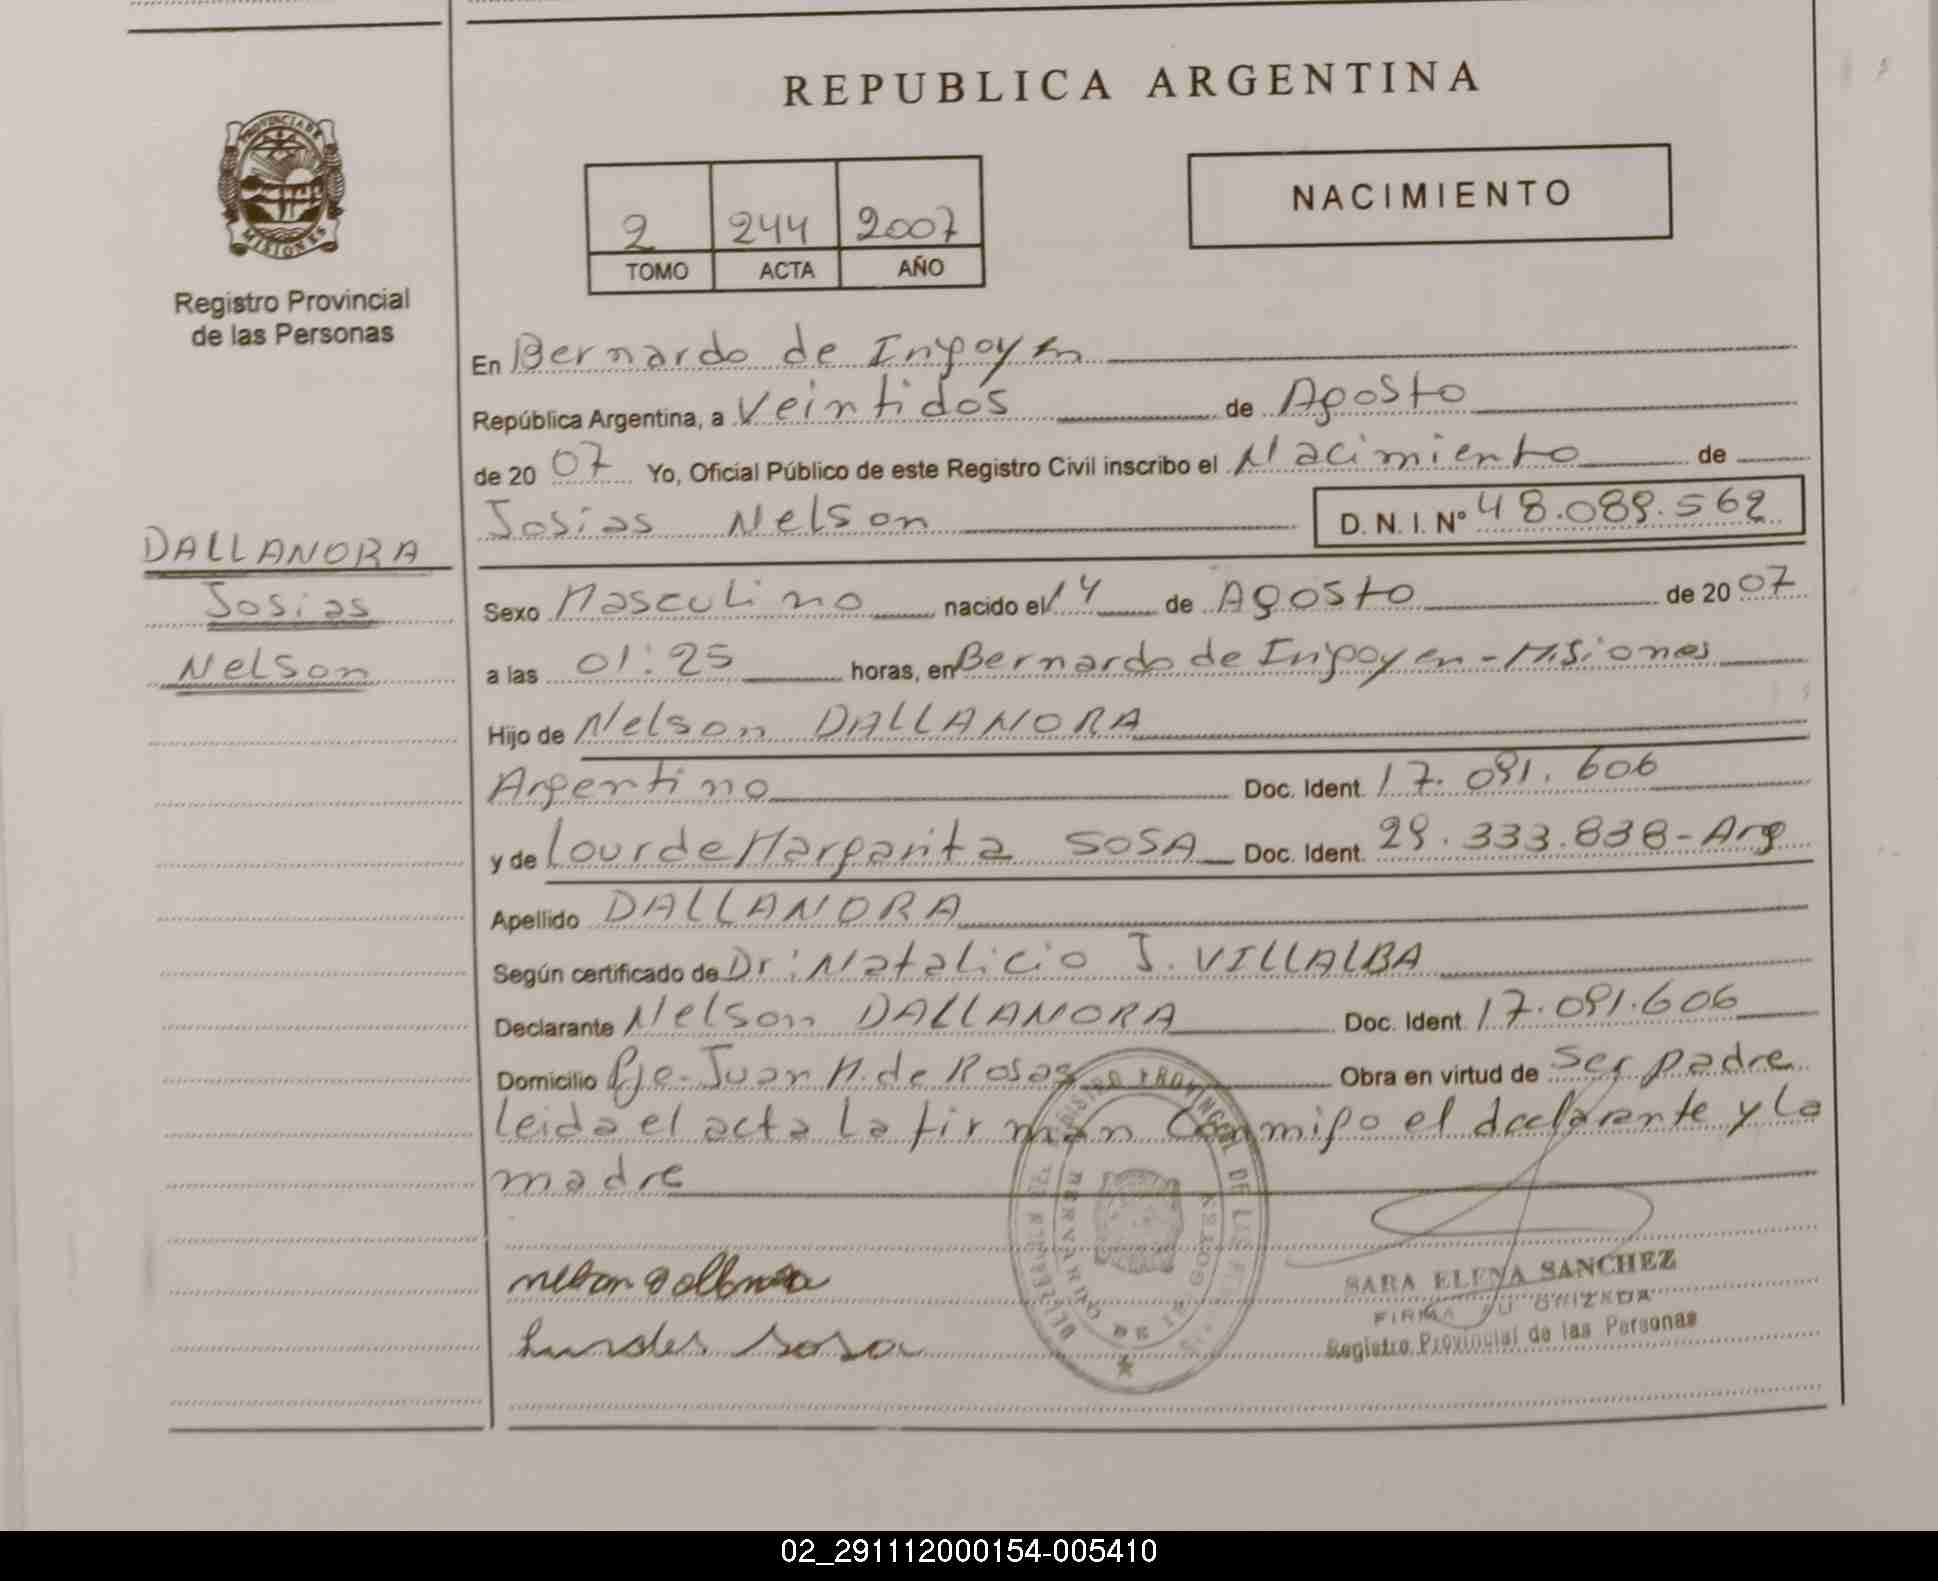 REPUBLICA ARGENTINA
PROVINCIA DE
MISIONES
Registro Provincial
de las Personas
2 244 2007
TOMO ACTA AÑO
NACIMIENTO
En Bernardo de Irigoyen
República Argentina, a Veintidos de Agosto
de 20 07 Yo, Oficial Público de este Registro Civil inscribo el Nacimiento de
Josias Nelson D. N. I. Nº 48.089.562
DALLANORA
Josias
Nelson
Sexo Masculino nacido el 14 de Agosto de 20 07
a las 01:25 horas, en Bernardo de Irigoyen - Misiones
Hijo de Nelson DALLANORA
Argentino Doc. Ident. 17.091.606
y de Lourde Margarita SOSA Doc. Ident. 29.333.838 - Arg
Apellido DALLANORA
Según certificado de Dr: Natalicio J. VILLALBA
Declarante Nelson DALLANORA Doc. Ident. 17.091.606
Domicilio Pje - Juan M. de Rosas Obra en virtud de Ser padre
leida el acta la firman Conmigo el declarante y la
madre
nelson dallanora
Lurdes sosa
SARA ELENA SANCHEZ
FIRMA AUTORIZADA
Registro Provincial de las Personas
02_291112000154-005410